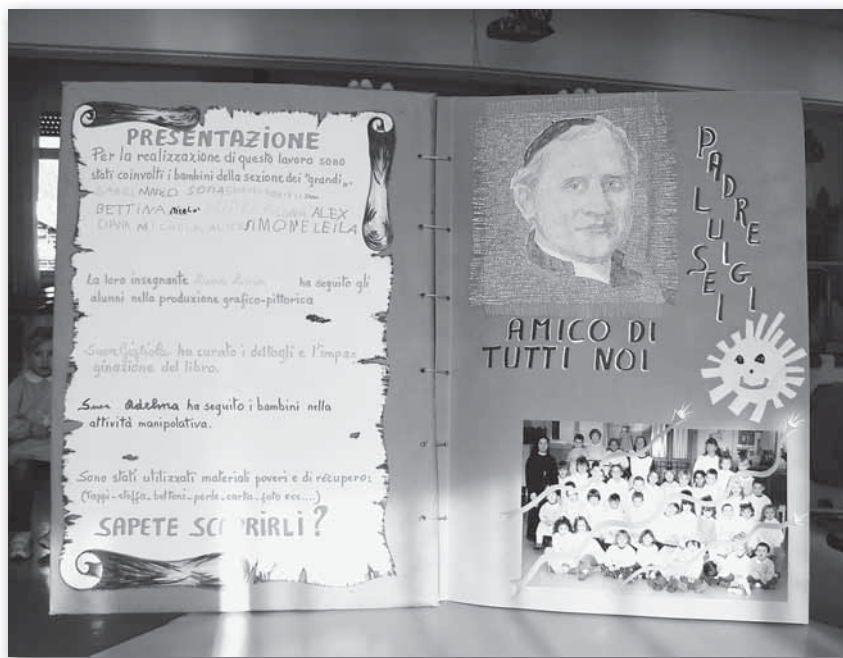 PRESENTAZIONE
Per la realizzazione di questo lavoro sono
stati coinvolti i bambini della sezione dei "grandi".
MARCO SOFIA
BETTINA NICOLò ALEX
MICHELA ALICE SIMONE LEILA
La loro insegnante ha seguito gli
alunni nella produzione grafico-pittorica
Suor Gigliola ha curato i dettagli e l'impa-
ginazione del libro.
Suor Adelma ha seguito i bambini nella
attività manipolativa.
Sono stati utilizzati materiali poveri e di recupero:
(Tappi-stoffa-bottoni-perle-carta-foto ecc....)
SAPETE SCOPRIRLI?
PADRE
LUIGI
SEI
AMICO DI
TUTTI NOI